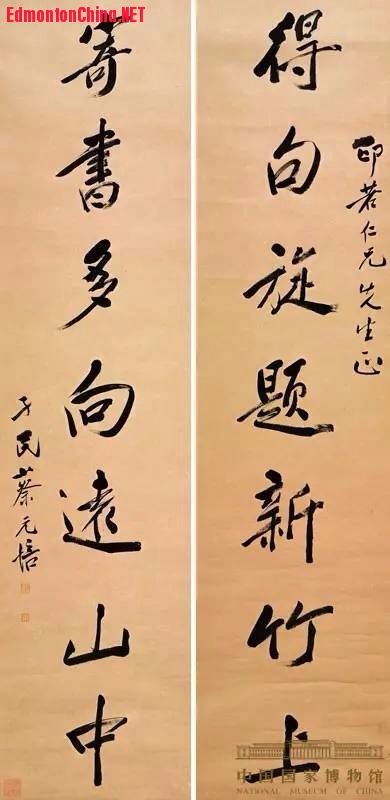 EdmontonChina.NET
得句旋题新竹上
印若仁兄先生正
寄書多向遠山中
孑民蔡元培
中国国家博物馆
NATIONAL MUSEUM OF CHINA